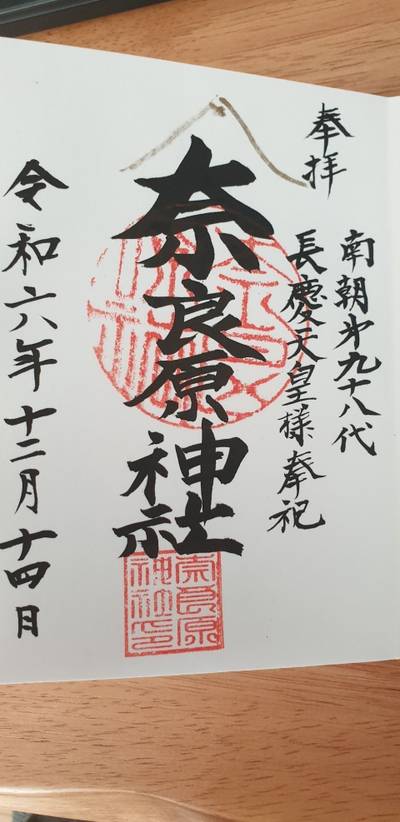 奉拝
南朝第九十八代
長慶天皇様奉祀
奈良原神社
奈良原
神社印
令和六年十二月十四日